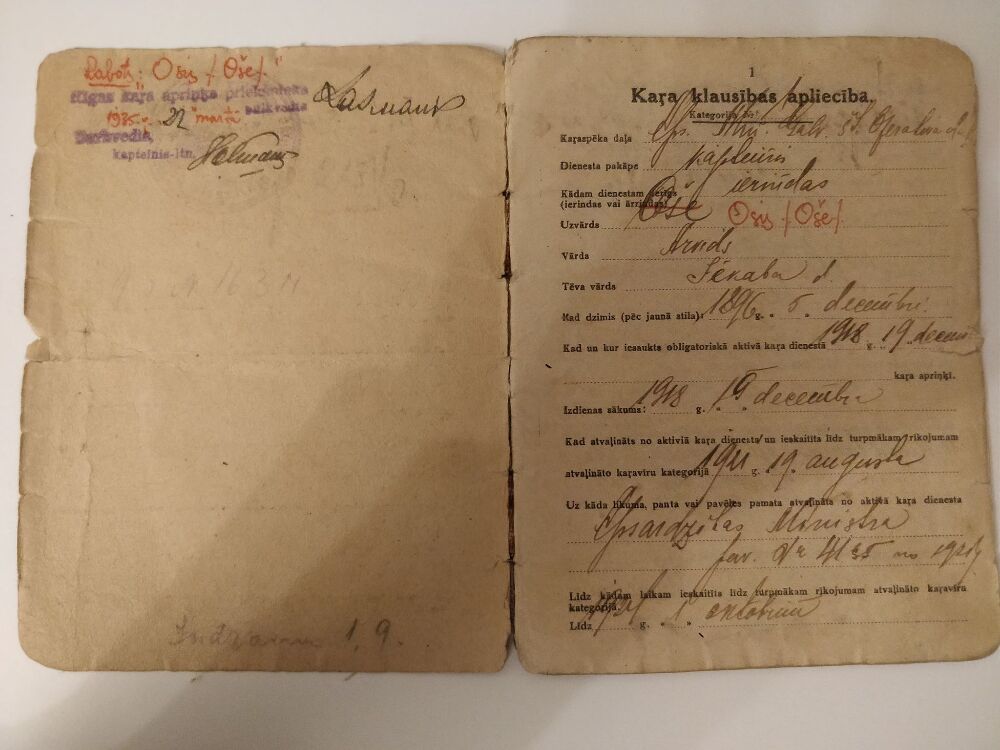 Labots: Osis /Oše/.
Rīgas kaŗa apriņķa priekšnieks
1935. g. 22 "martā pulkvedis
Darbvedis,
kapteinis-ltn.
1
Kaŗa klausības apliecība.
Kategorija Nr.
Kaŗaspēka daļa Aps. Min. Galv. št. Operatīvā daļ
Dienesta pakāpe kapteinis
Kādam dienestam derīgs
(ierindas vai ārrindas) ierindas
Uzvārds Ošē Osis /Oše/.
Vārds Arvīds
Tēva vārds Jēkaba d.
Kad dzimis (pēc jaunā stila): 1896 g. „ 5 „ decembrī.
Kad un kur iesaukts obligatoriskā aktīvā kaŗa dienestā 1918 g. 19. decem
kaŗa apriņķī.
Izdienas sākums: 1918 g. „ 19 „ decembra
Kad atvaļināts no aktīvā kaŗa dienesta un ieskaitīts līdz turpmākam rīkojumam
atvaļināto kaŗavīru kategorijā 1921 g. „ 19. augusta
Uz kāda likuma, panta vai pavēles pamata atvaļināts no aktīvā kaŗa dienesta
Apsardzības Ministra
pav. № 4135 no 1921 g
Līdz kādam laikam ieskaitīts līdz turpmākam rīkojumam atvaļināto kaŗavīru
kategorijā.
Līdz g. „ 1 „ oktobrim
1, 9.